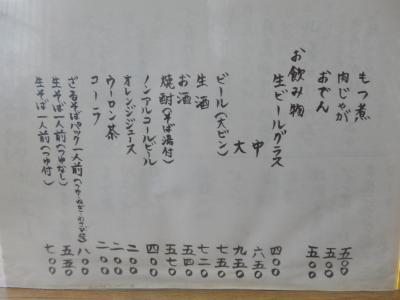 もつ煮 五〇〇
肉じゃが 五〇〇
おでん 五〇〇
お飲み物
生ビールグラス 四〇〇
中 六五〇
大 九五〇
ビール(大ビン) 七五〇
生酒 七二〇
お酒 五四〇
焼酎(そば湯付) 五七〇
ノンアルコールビール 四〇〇
オレンジジュース 二〇〇
ウーロン茶 二〇〇
コーラ 二〇〇
ざるそばパック一人前(つゆ・ねぎ・わさび付) 八〇〇
生そば一人前(つゆなし) 五五〇
生そば一人前(つゆ付) 七〇〇